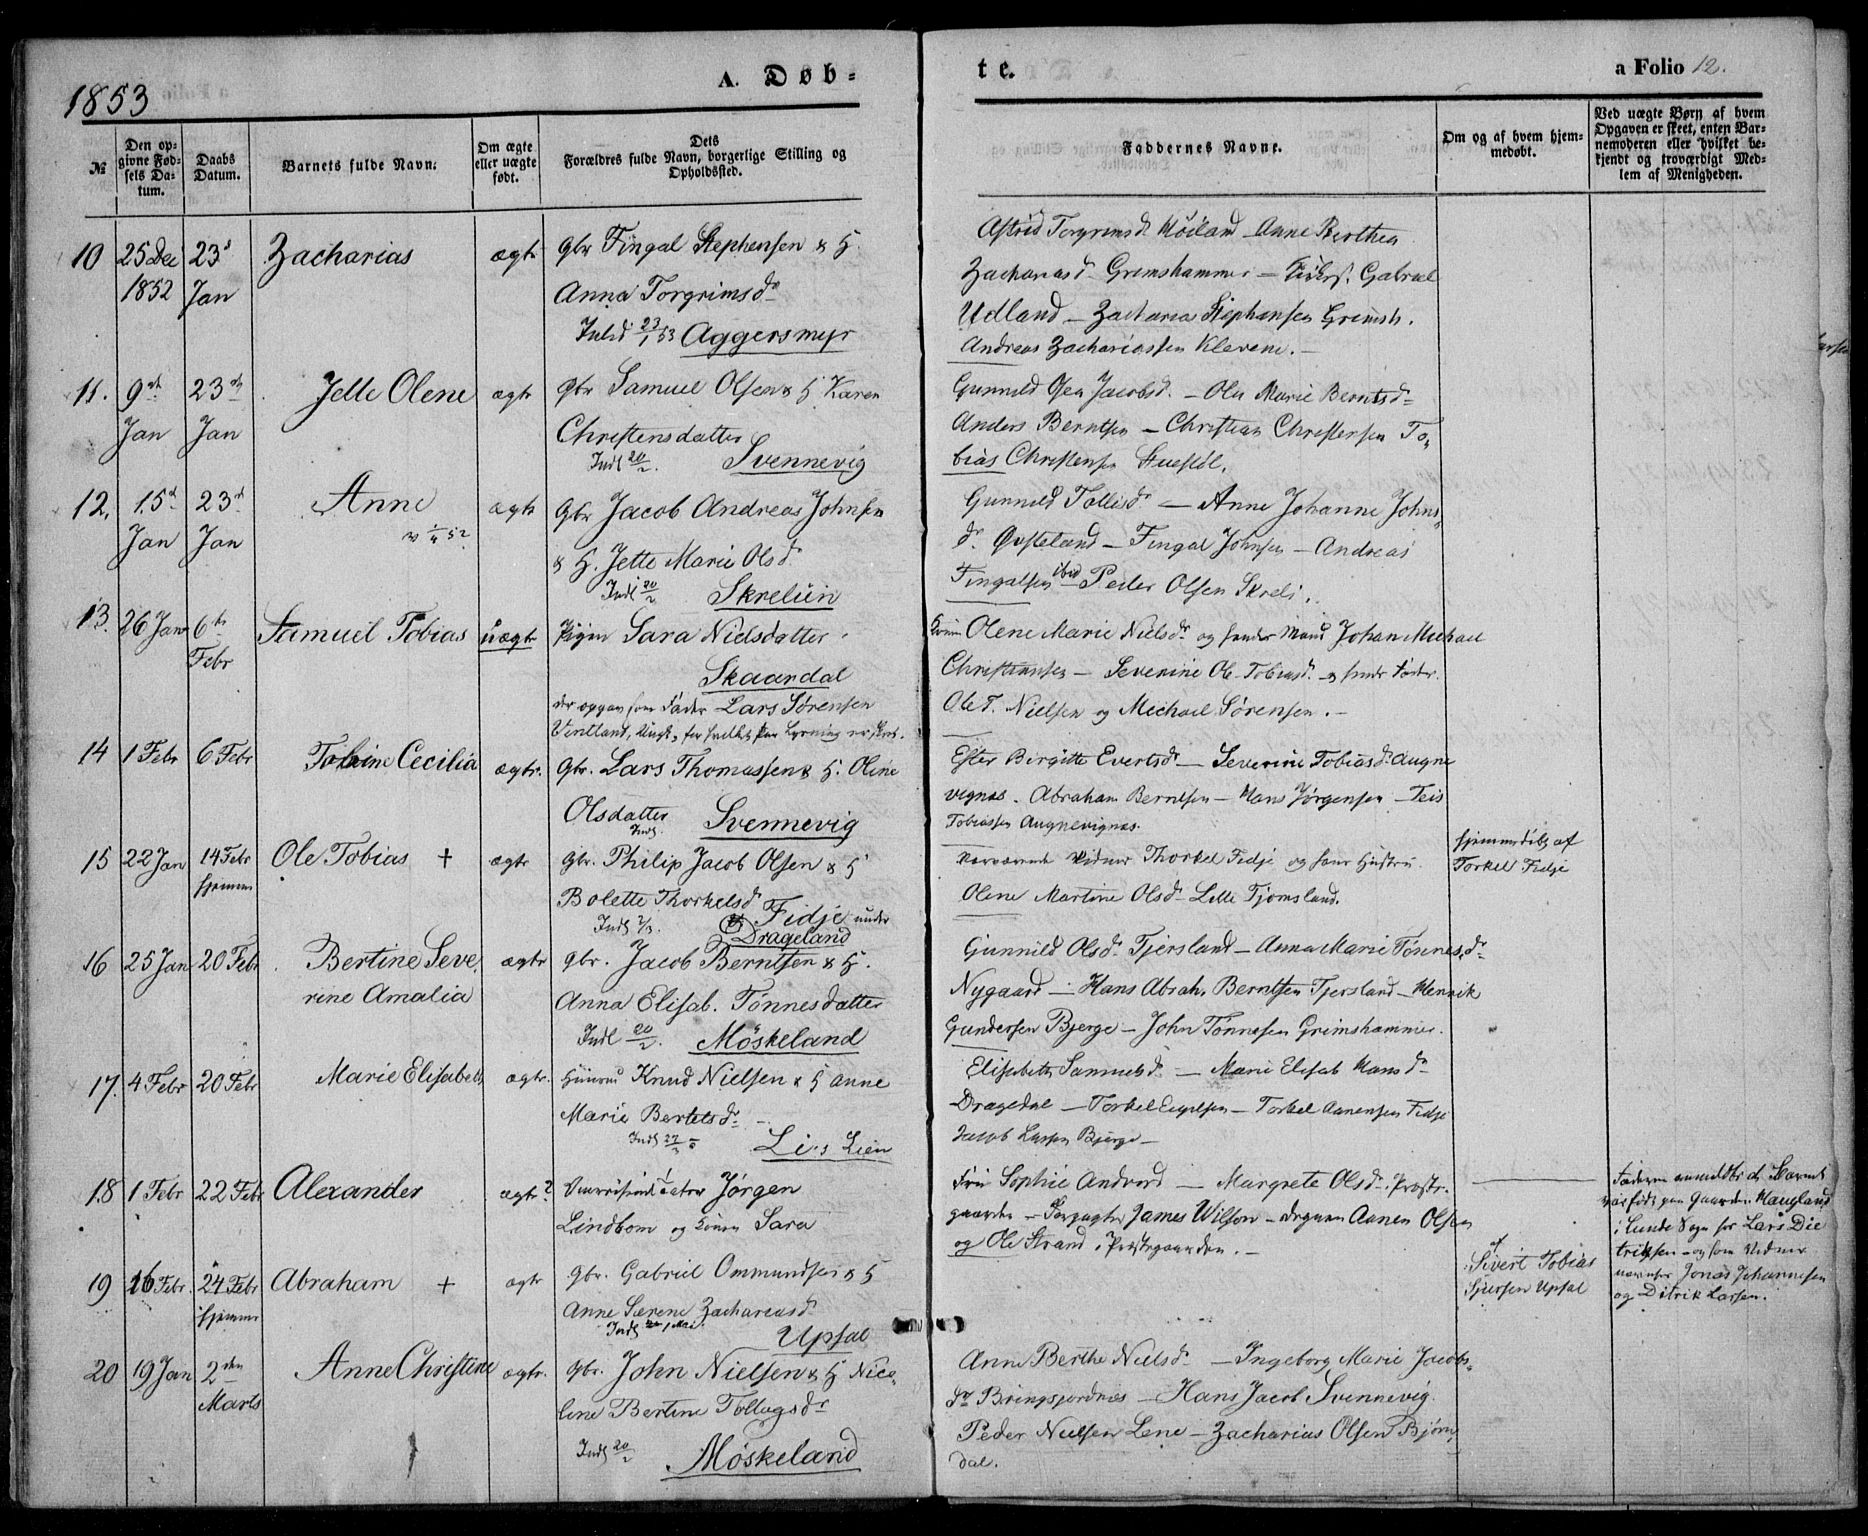 1853
A. Døb-
te.
a Folio 12.
№
Den op-
givne Fød-
sels Da-
tum.
Daabs
Datum.
Barnets fulde Navn.
Om ægte
eller uægte
født.
Dets
Forældres fulde Navn, borgerlige Stilling og
Opholdssted.
Faddernes Navne.
Om og af hvem hjem-
medøbt.
Ved uægte Børn af hvem
Opgaven er skeet, enten Bar-
nemoderen eller hvilket be-
kjendt og troværdigt Med-
lem af Menigheden.
10
25 Dec
1852
23d
Jan
Zacharias
ægte
Gbr Fingal Stephensen & H.
Anna Torgrimsdr
23/1 53 Aggersmyr
Astrid Torgrimsdr Høiland - Anne Berthea
Zachariasdr Grimshammer - Gabriel
Udland - Zacharia Stephansen Grimsh.
Andreas Zachariassen Klevene.-
11.
9de
Jan
23de
Jan
Jelle Olene
ægte
Gbr Samuel Olsen & H Karen
Christensdatter
Indl 20/2. Svennevig
Gunnild Jacobsd. - Marie Berntsd=
Anders Berntsen - Christian Christensen To-
bias Christensen
12.
15d
Jan
23d
Jan
Anne
ægte
Gbr Jacob Andreas Johnsen
& H. Jette Marie Olsdr
Indl 20/2 Skreliin
Gunnild Tollisdr - Anne Johanne Johns-
dr. Øvsteland - Fingal Johnsen - Andreas
Fingalsen ibid Peder Olsen Skreli.
13.
26 Jan
6te
Febr
Samuel Tobias
uægte
Pigen Sara Nielsdatter
Skaardal
der opgav som Fader Lars Sørensen
Olene Marie Nielsdr og hendes Mand Johan Michael
Christiansen - Severine Ol. Tobiasdr og hendes Fader
Ole T. Nielsen og Michael Sørensen.-
14
1 Febr
6 Febr
Tobine Cecilia
ægte.
Gbr. Lars Thomassen & H. Oline
Olsdatter
Indl. Svennevig
Ester Birgitte Evertsdr - Severine Tobiasdr Augne
vignæs. Abraham Berntsen - Hans Jørgensen - Teis
Tobiassen Augnevignæs.
15
22 Jan
14 Febr
hjemme
Ole Tobias +
ægte
Gbr. Philip Jacob Olsen & H
Bolette Thorkelsdr
Fidje under
Indl Drageland
Nærværende Vidner Thorkel Fidje og hans Hustru
Olene Martine Olsdr Lille Tjomsland.
hjemmedøbt af
Torkel Fidje
16
25 Jan
20 Febr
Bertine Seve-
rine Amalia
ægte
Gbr. Jacob Berntsen & H.
Anna Elisab. Tønnesdatter
Indl 20/2. Møskeland
Gunnild Olsdr Tjersland - Anna Marie Tønnesdr
Nygaard - Hans Abrah. Berntsen Tjersland - Henrik
Gundersen Bjerge - John Tønnesen Grimshammer.
17.
4 Febr
20 Febr
Marie Elisabeth
ægte.
Knud Nielsen & H Anne
Marie Bertelsdr
Indl Lien
Elisabeth Samuelsdr - Marie Elisab Hansdr
Dragedal - Torkel - Torkel Aanensen Fidje
Jacob Larsen Bjerge -
18
1 Febr
22 Febr
Alexander
ægte?
Jørgen
Lindbom og Konen Sara
Sophie Andvord - Margrete Olsdr Præste-
gaarden - James Wilson - Aanen Olsen
og Ole Strand i Præstegaarden.-
Faderen anmeldte at Barnet
var født paa Gaarden Haugland
i Lunde Sogn hos Lars Die
triksen - og som Vidner
nævner Jonas Johannesen
og Ditrik Larsen.
19
16 Febr.
24 Febr
hjemme
Abraham +
ægte
Gbr. Gabriel Ommundsen & H
Anne Serene Zachariasdr
Indl Upsal
af
Sivert Tobias
Sjursen Upsal
20
19 Jan
2den
Marts
Anne Christine
ægte.
Gbr. John Nielsen & H Nico-
line Bertine Tollagsdr
Indl 20/2 Møskeland
Anne Berthe Nielsdr - Ingeborg Marie Jacobs-
dr Bringsjordnæs - Hans Jacob Svennevig.
Peder Nielsen Lene - Zacharias Olsen Bjørn
dal.